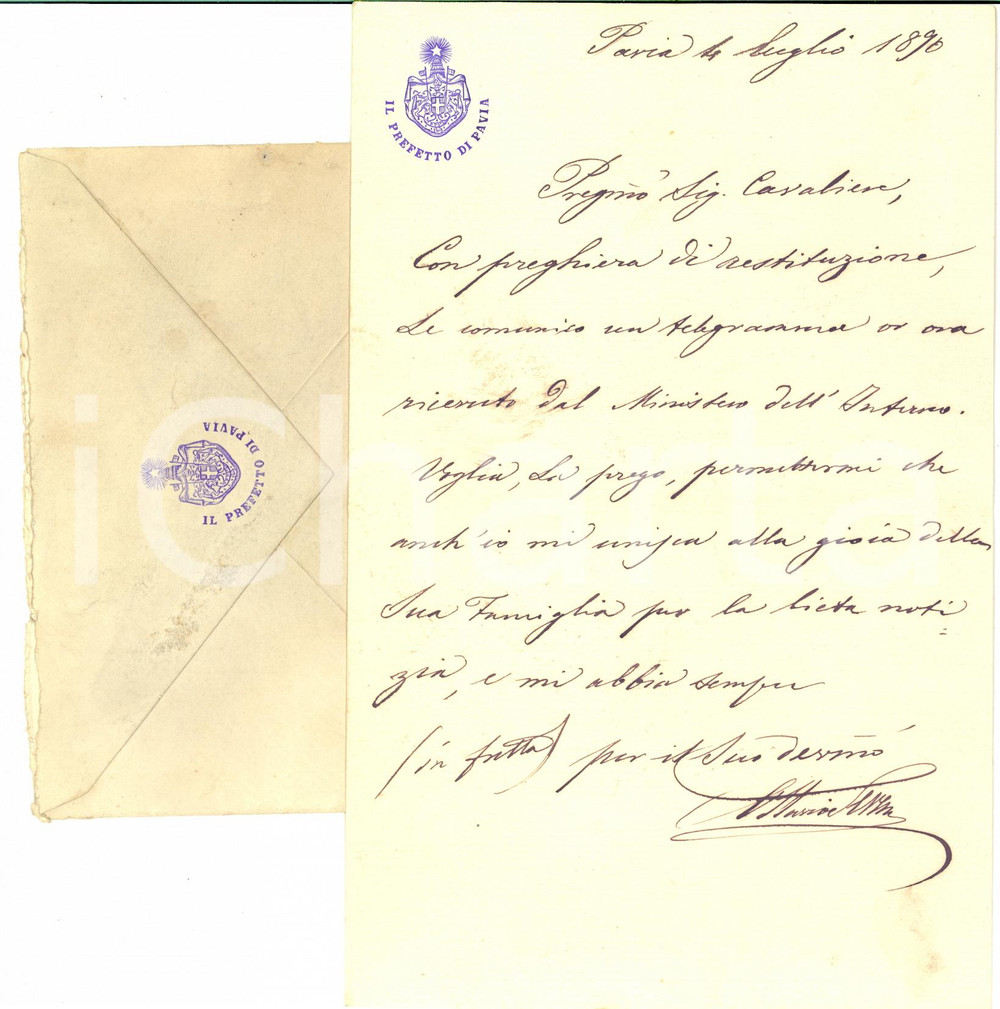 Pavia 4 luglio 1890
IL PREFETTO DI PAVIA
Pregmo Sig. Cavaliere,
Con preghiera di restituzione,
Le comunico un telegramma or ora
ricevuto dal Ministero dell'Interno.
Voglia, La prego, permettermi che
anch'io mi unisca alla gioia della
Sua Famiglia per la lieta noti=
zia, e mi abbia sempre
(in fretta) per il Suo devmo
IL PREFETTO DI PAVIA
iCharta